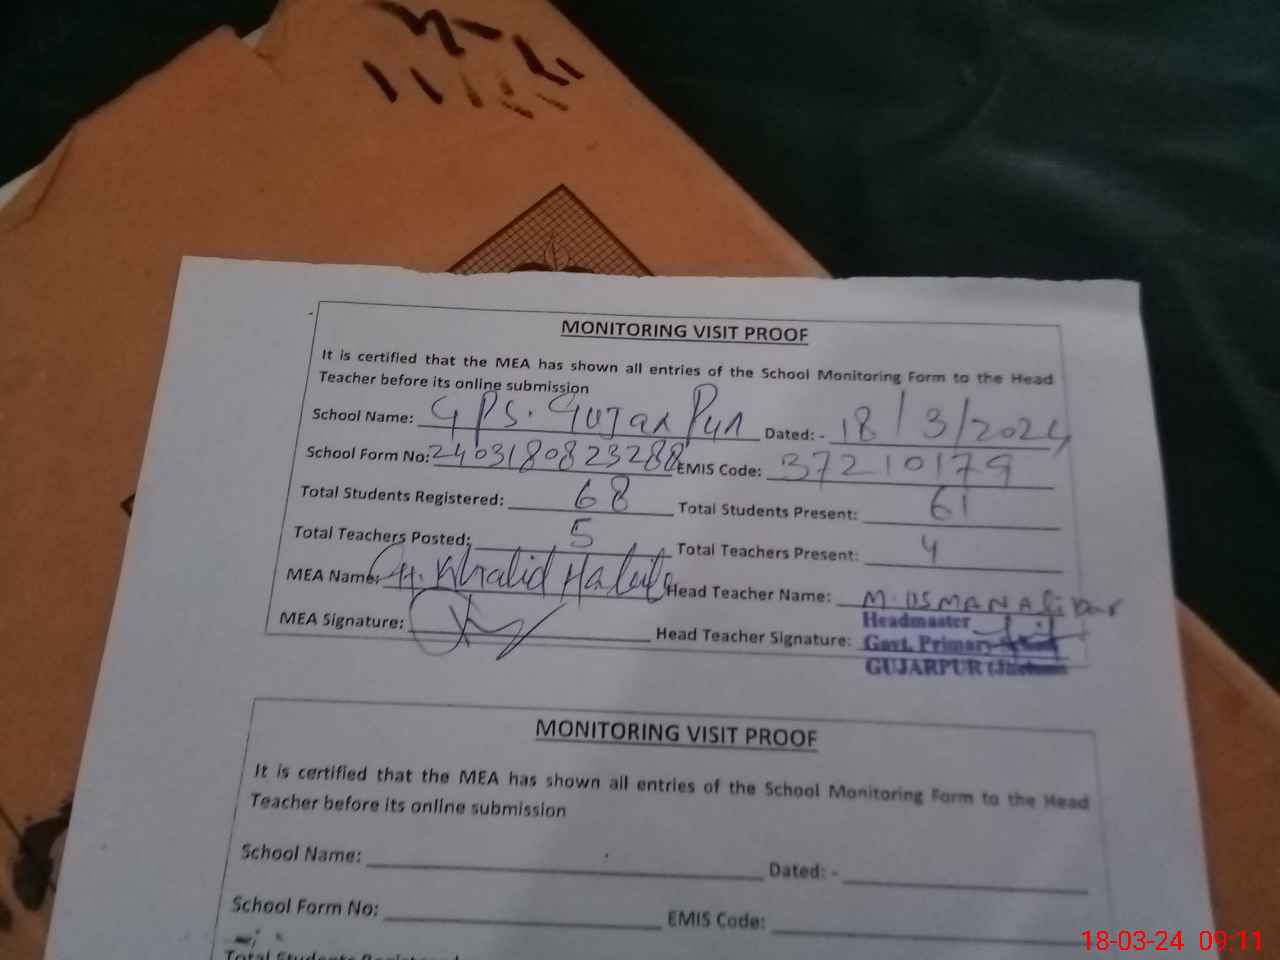 MONITORING VISIT PROOF
It is certified that the MEA has shown all entries of the School Monitoring Form to the Head
Teacher before its online submission
School Name: GPS. Gujar Pur Dated: - 18/3/2024
School Form No: 2403180823288 EMIS Code: 37210179
Total Students Registered: 68 Total Students Present: 61
Total Teachers Posted: 5 Total Teachers Present: 4
MEA Name: CH. Khalid Head Teacher Name: M. USMAN Ali
MEA Signature: Head Teacher Signature:
Headmaster
Govt. Primary
GUJARPUR
MONITORING VISIT PROOF
It is certified that the MEA has shown all entries of the School Monitoring Form to the Head
Teacher before its online submission
School Name: Dated: -
School Form No: EMIS Code:
Total Students Registered:
18-03-24 09:11